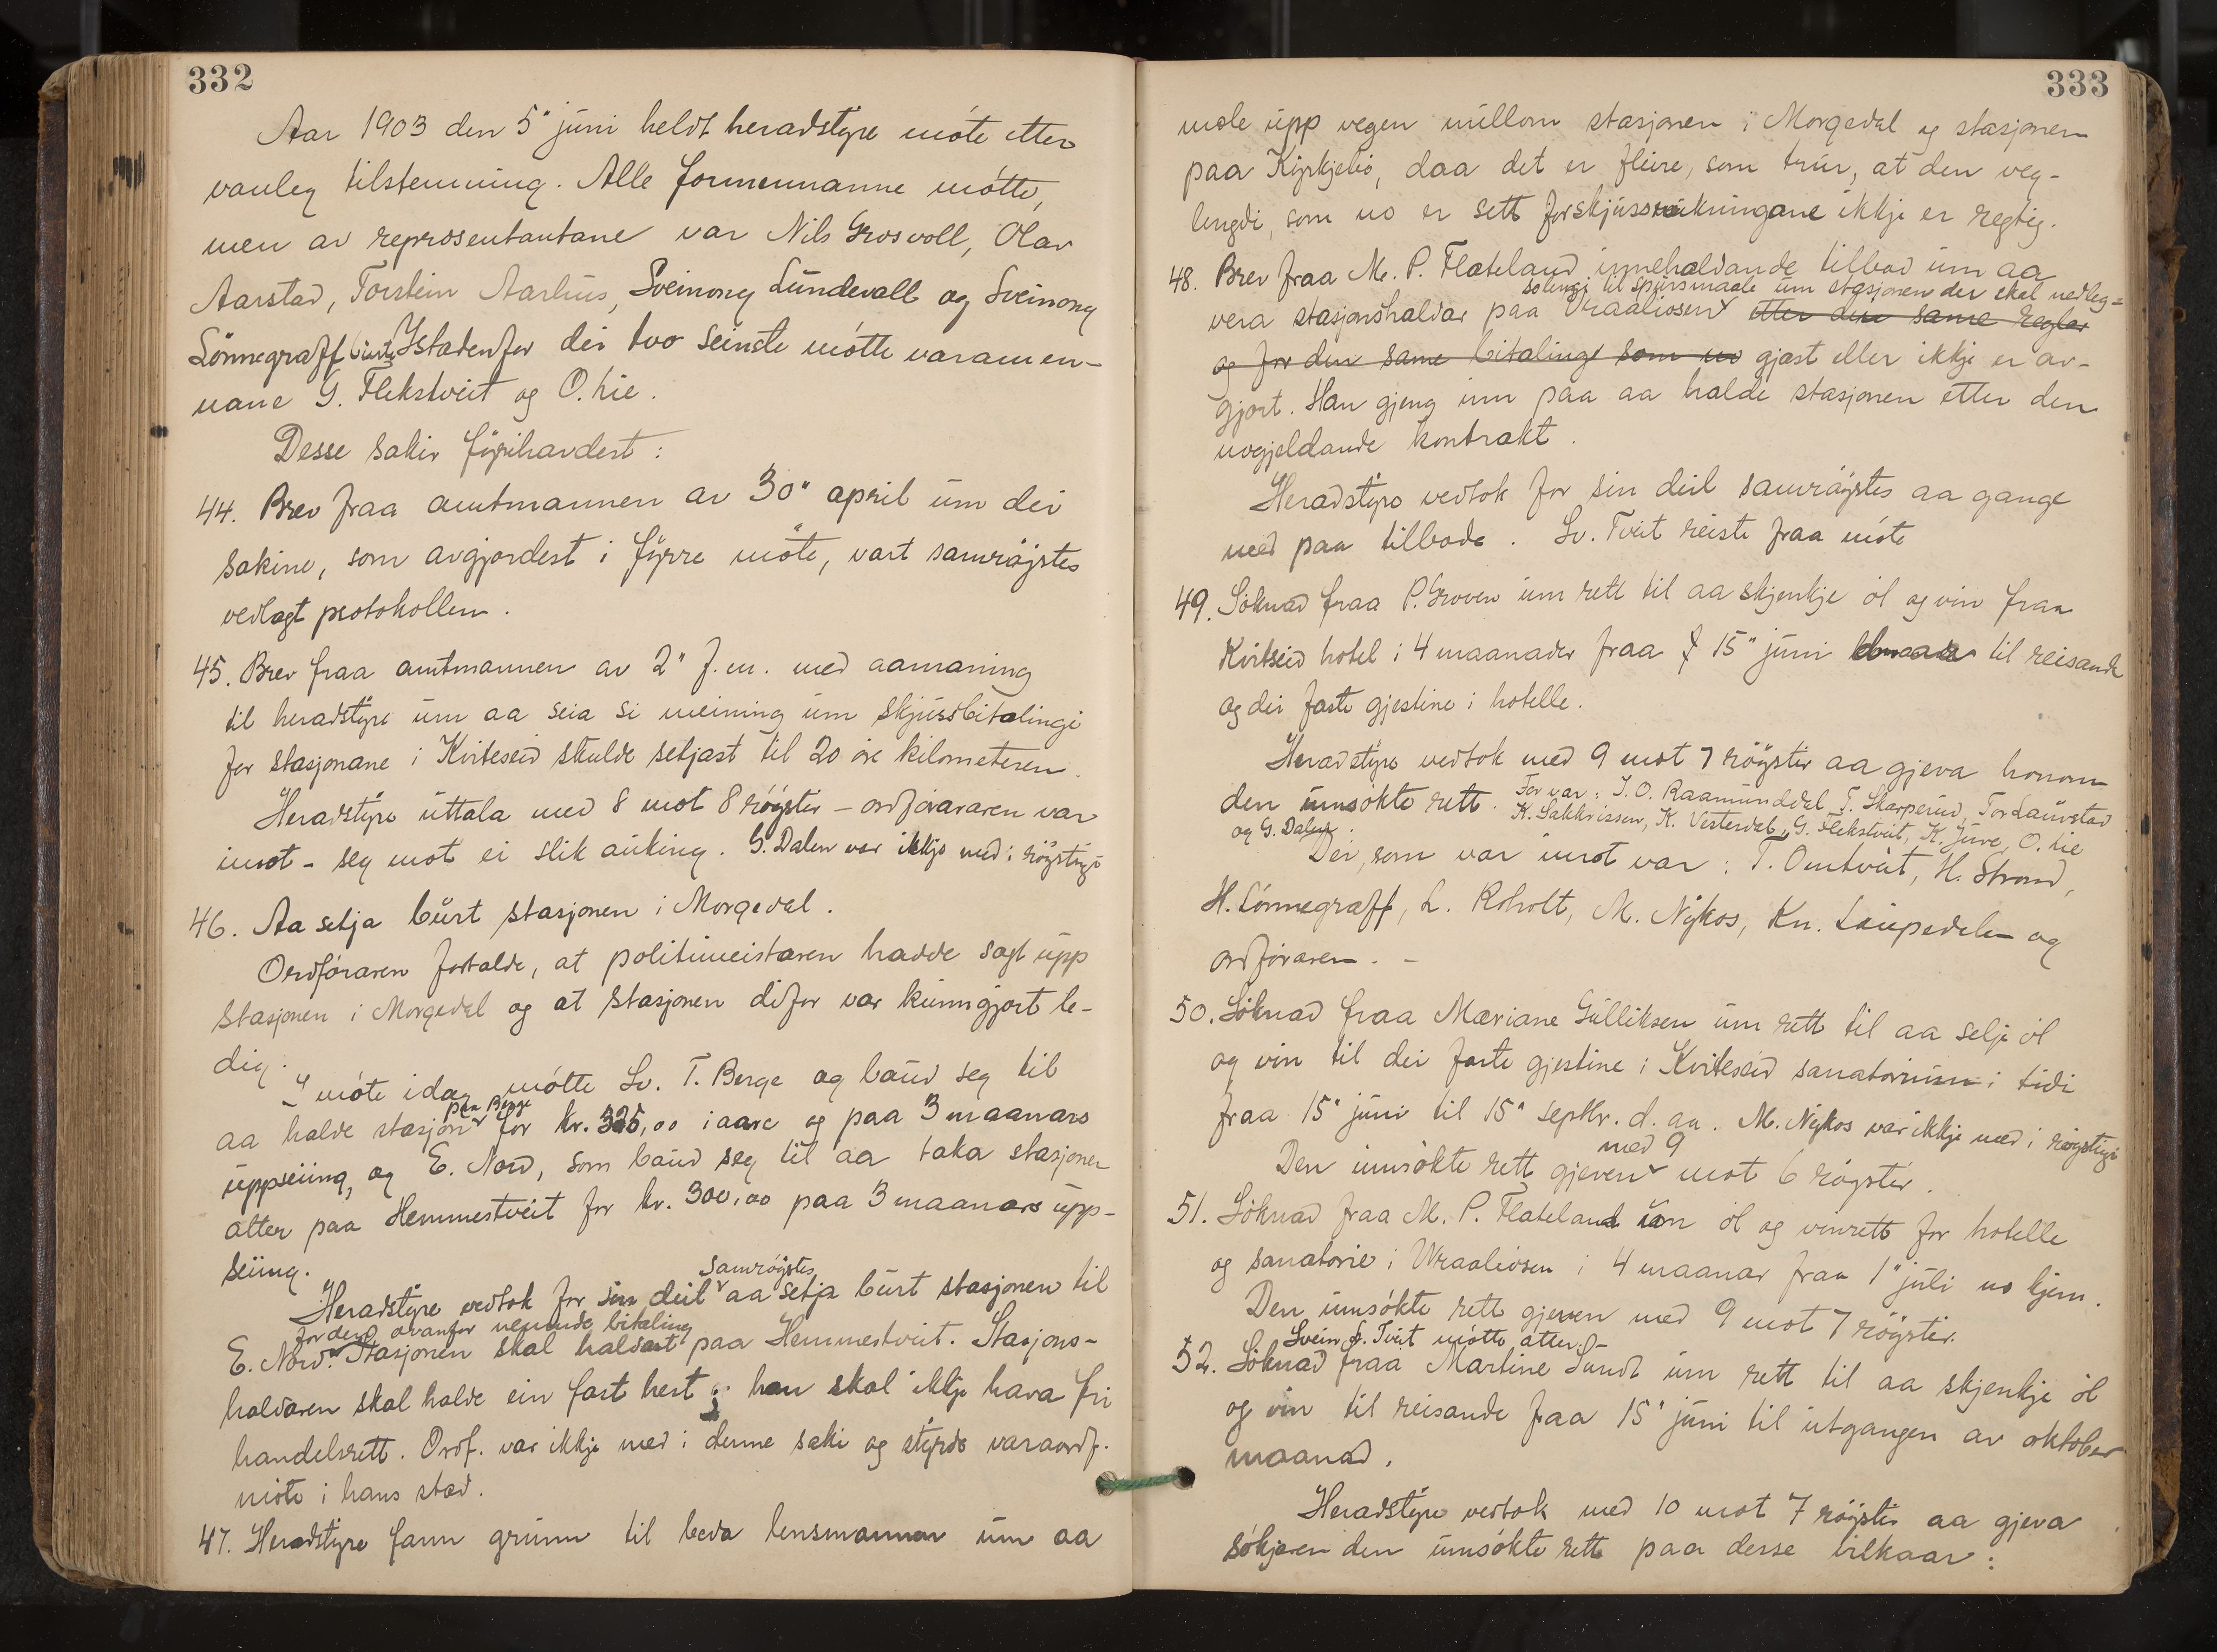 332
Aar 1903 den 5" juni heldt heradstyre móte etter
vanleg tilstemning. Alle formennanne mótte,
men av representantane var Nils Grosvoll, Olav
Aarstad, Torstein Aarhus, Sveinong Lundevall og Sveinong
Lönnegraff burte Istadenfor dei tvo seinste mótte varamen-
nane G. Flekstveit og O. Lie.
Desse sakir fyrihavdest:
44. Brev fraa amtmannen av 30" april um dei
sakine, som avgjordest i fyrre móte, vart samröystes
vedlagt protokollen.
45. Brev fraa amtmannen av 2" f.m. med aamaning
til heradstyre um aa seia si meining um skjussbitalingi
for stasjonane i Kviteseid skulde setjast til 20 öre kilometeren.
Heradstyre uttala med 8 mot 8 röyster – ordföraren var
imot – seg mot ei slik auking. G. Dalen var ikkje med i röystingi
46. Aa setja burt stasjonen i Morgedal.
Ordföraren fortalde, at politimeistaren hadde sagt upp
stasjonen i Morgedal og at stasjonen difor var kunngjort le-
dig.
I móte idag mótte Sv. T. Berge og baud seg til
paa Berge
aa halde stasjon for kr. 325,00 i aare og paa 3 maanars
uppseiing, og E. Nord, som baud seg til aa taka stasjonen
atter paa Hemmestveit for kr. 300,00 paa 3 maanars upp-
seiing.
samröystes
Heradstyre vedtok for sin deil aa setja burt stasjonen til
for den ovanfor nemnde bitaling
E. Nord. Stasjonen skal haldast paa Hemmestveit. Stasjons-
haldaren skal halde ein fast hest; han skal ikkje hava fri
handelsrett. Ordf. var ikkje med i denne saki og styrde varaordf.
móte i hans stad.
47. Heradstyre fann grunn til beda lensmannen um aa
333
mæle upp vegen millom stasjonen i Morgedal og stasjonen
paa Kyrkjebö, daa det er fleire, som trur, at den veg-
lengdi, som no er sett for skjussreikningane ikkje er regtig.
48. Brev fraa M. P. Flateland innehaldande tilbod um aa
solengi til spursmaale um stasjonen der skal nedleg-
vera stasjonshaldar paa Vraaliosen etter dei same reglar
og for den same bitaling som no gjast eller ikkje er av-
gjort. Han gjeng inn paa aa halde stasjonen etter den
nogjeldande kontrakt.
Heradstyre vedtok for sin deil samröystes aa gange
med paa tilbode. Sv. Tveit reiste fraa móte
49. Söknad fraa P. Groven um rett til aa skjenkje öl og vin fraa
Kvitseid hotel i 4 maanader fraa 15" juni til reisande
og dei faste gjestine i hotelle.
Heradstyre vedtok med 9 mot 7 röyster aa gjeva honom
den umsökte rett. For var: J. O. Raamunddal, T. Skarperud, Tordaurstad
K. Sakkrissen, K. Vesterdal, G. Flekstveit, K. Juve, O. Lie
og G. Dalen.
Dei, som var imot var: T. Omtveit, H. Strand,
H. Lönnegraff, L. Roholt, M. Nykos, Kn. Laupedalen og
ordföraren. –
50. Söknad fraa Mariane Gulliksen um rett til aa selje öl
og vin til dei faste gjestine i Kviteseid sanatorium i tidi
fraa 15" juni til 15" septbr. d. aa. M. Nykos var ikkje med i röystingi
med 9
Den umsökte rett gjeven mot 6 röyster.
51. Söknad fraa M. P. Flateland um öl og vinrett for hotelle
og sanatorie i Vraaliosen i 4 maanar fraa 1" juli no kjem.
Den umsökte rett gjeven med 9 mot 7 röyster.
Svein S. Tveit mótte atter. –
52. Söknad fraa Martine Sundt um rett til aa skjenkje öl
og vin til reisande fraa 15" juni til utgangen av oktober
maanad.
Heradstyre vedtok med 10 mot 7 röyster aa gjeva
sökjaren den umsökte rett paa desse vilkaar: